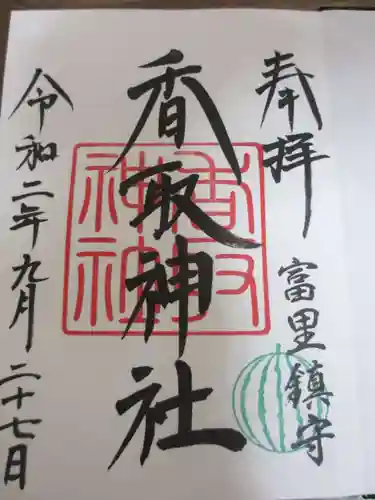 奉拝
富里鎮守
香取神社
香取神社
令和二年九月二十七日